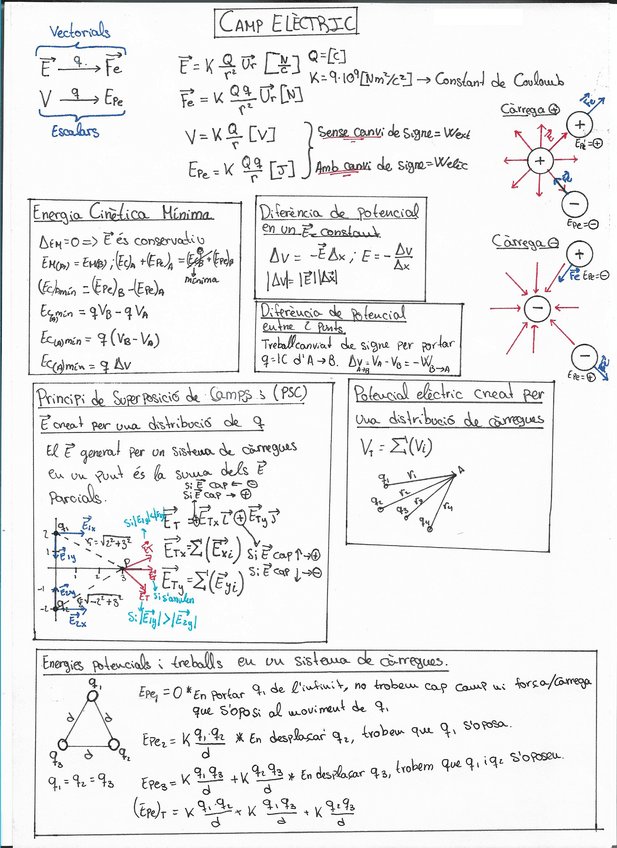 CAMP ELÈCTRIC
Vectorials
E⃗ —q→ F⃗e
V —q→ Epe
Escalars
E⃗ = K Q/r² U⃗r [N/C]
Q=[C]
K=9·10⁹[Nm²/c²] → Constant de Coulomb
F⃗e = K Qq/r² U⃗r [N]
V = K Q/r [V]
Sense canvi de signe = Wext
Epe = K Qq/r [J]
Amb canvi de signe = Welèc
Càrrega +
Epe=+
Epe=−
Càrrega −
F⃗e Epe=−
Epe=+
Energia Cinètica Mínima
ΔEM=0 => E⃗ és conservatiu
EM(A) = EM(B) ; (Ec)A + (Epe)A = (Ec)B + (Epe)B
mínima
(Ec)mín = (Epe)B − (Epe)A
Ec(A)mín = qVB − qVA
Ec(A)mín = q(VB − VA)
Ec(A)mín = q ΔV
Diferència de potencial
en un E⃗ constant
ΔV = −E⃗Δx ; E = −ΔV/Δx
|ΔV| = |E⃗||Δx|
Diferència de potencial
entre 2 Punts.
Treball canviat de signe per portar
q=1C d'A → B. ΔV A→B = VA − VB = −W B→A
Principi de Superposició de Camps (PSC)
E⃗ creat per una distribució de q
El E⃗ generat per un sistema de càrregues
en un punt és la suma dels E⃗
Parcials.
Si E⃗ cap ← −
Si E⃗ cap → +
E⃗T = E⃗Tx i⃗ + E⃗Ty j⃗
E⃗Tx = Σ(E⃗xi)
E⃗Ty = Σ(E⃗yi)
Si E⃗ cap ↑ → +
Si E⃗ cap ↓ → −
2 q1 E⃗1x
r=√2²+3²
E⃗1y
P
3
E⃗2y
-1
r=√−2²+3²
-2 q2
E⃗2x
E⃗T
Si s'anul·len
Si |E⃗1y| > |E⃗2y|
Potencial elèctric creat per
una distribució de càrregues
VT = Σ(Vi)
q1 r1 A
q2 r2
q3 r3
q4 r4
Energies potencials i treballs en un sistema de càrregues.
q1
d d
q3 d q2
q1 = q2 = q3
Epe1 = 0 * En portar q1 de l'infinit, no trobem cap camp ni força/càrrega
que s'oposi al moviment de q1
Epe2 = K q1·q2/d * En desplaçar q2, trobem que q1 s'oposa.
Epe3 = K q1q3/d + K q2q3/d * En desplaçar q3, trobem que q1 i q2 s'oposen.
(Epe)T = K q1·q2/d + K q1q3/d + K q2q3/d